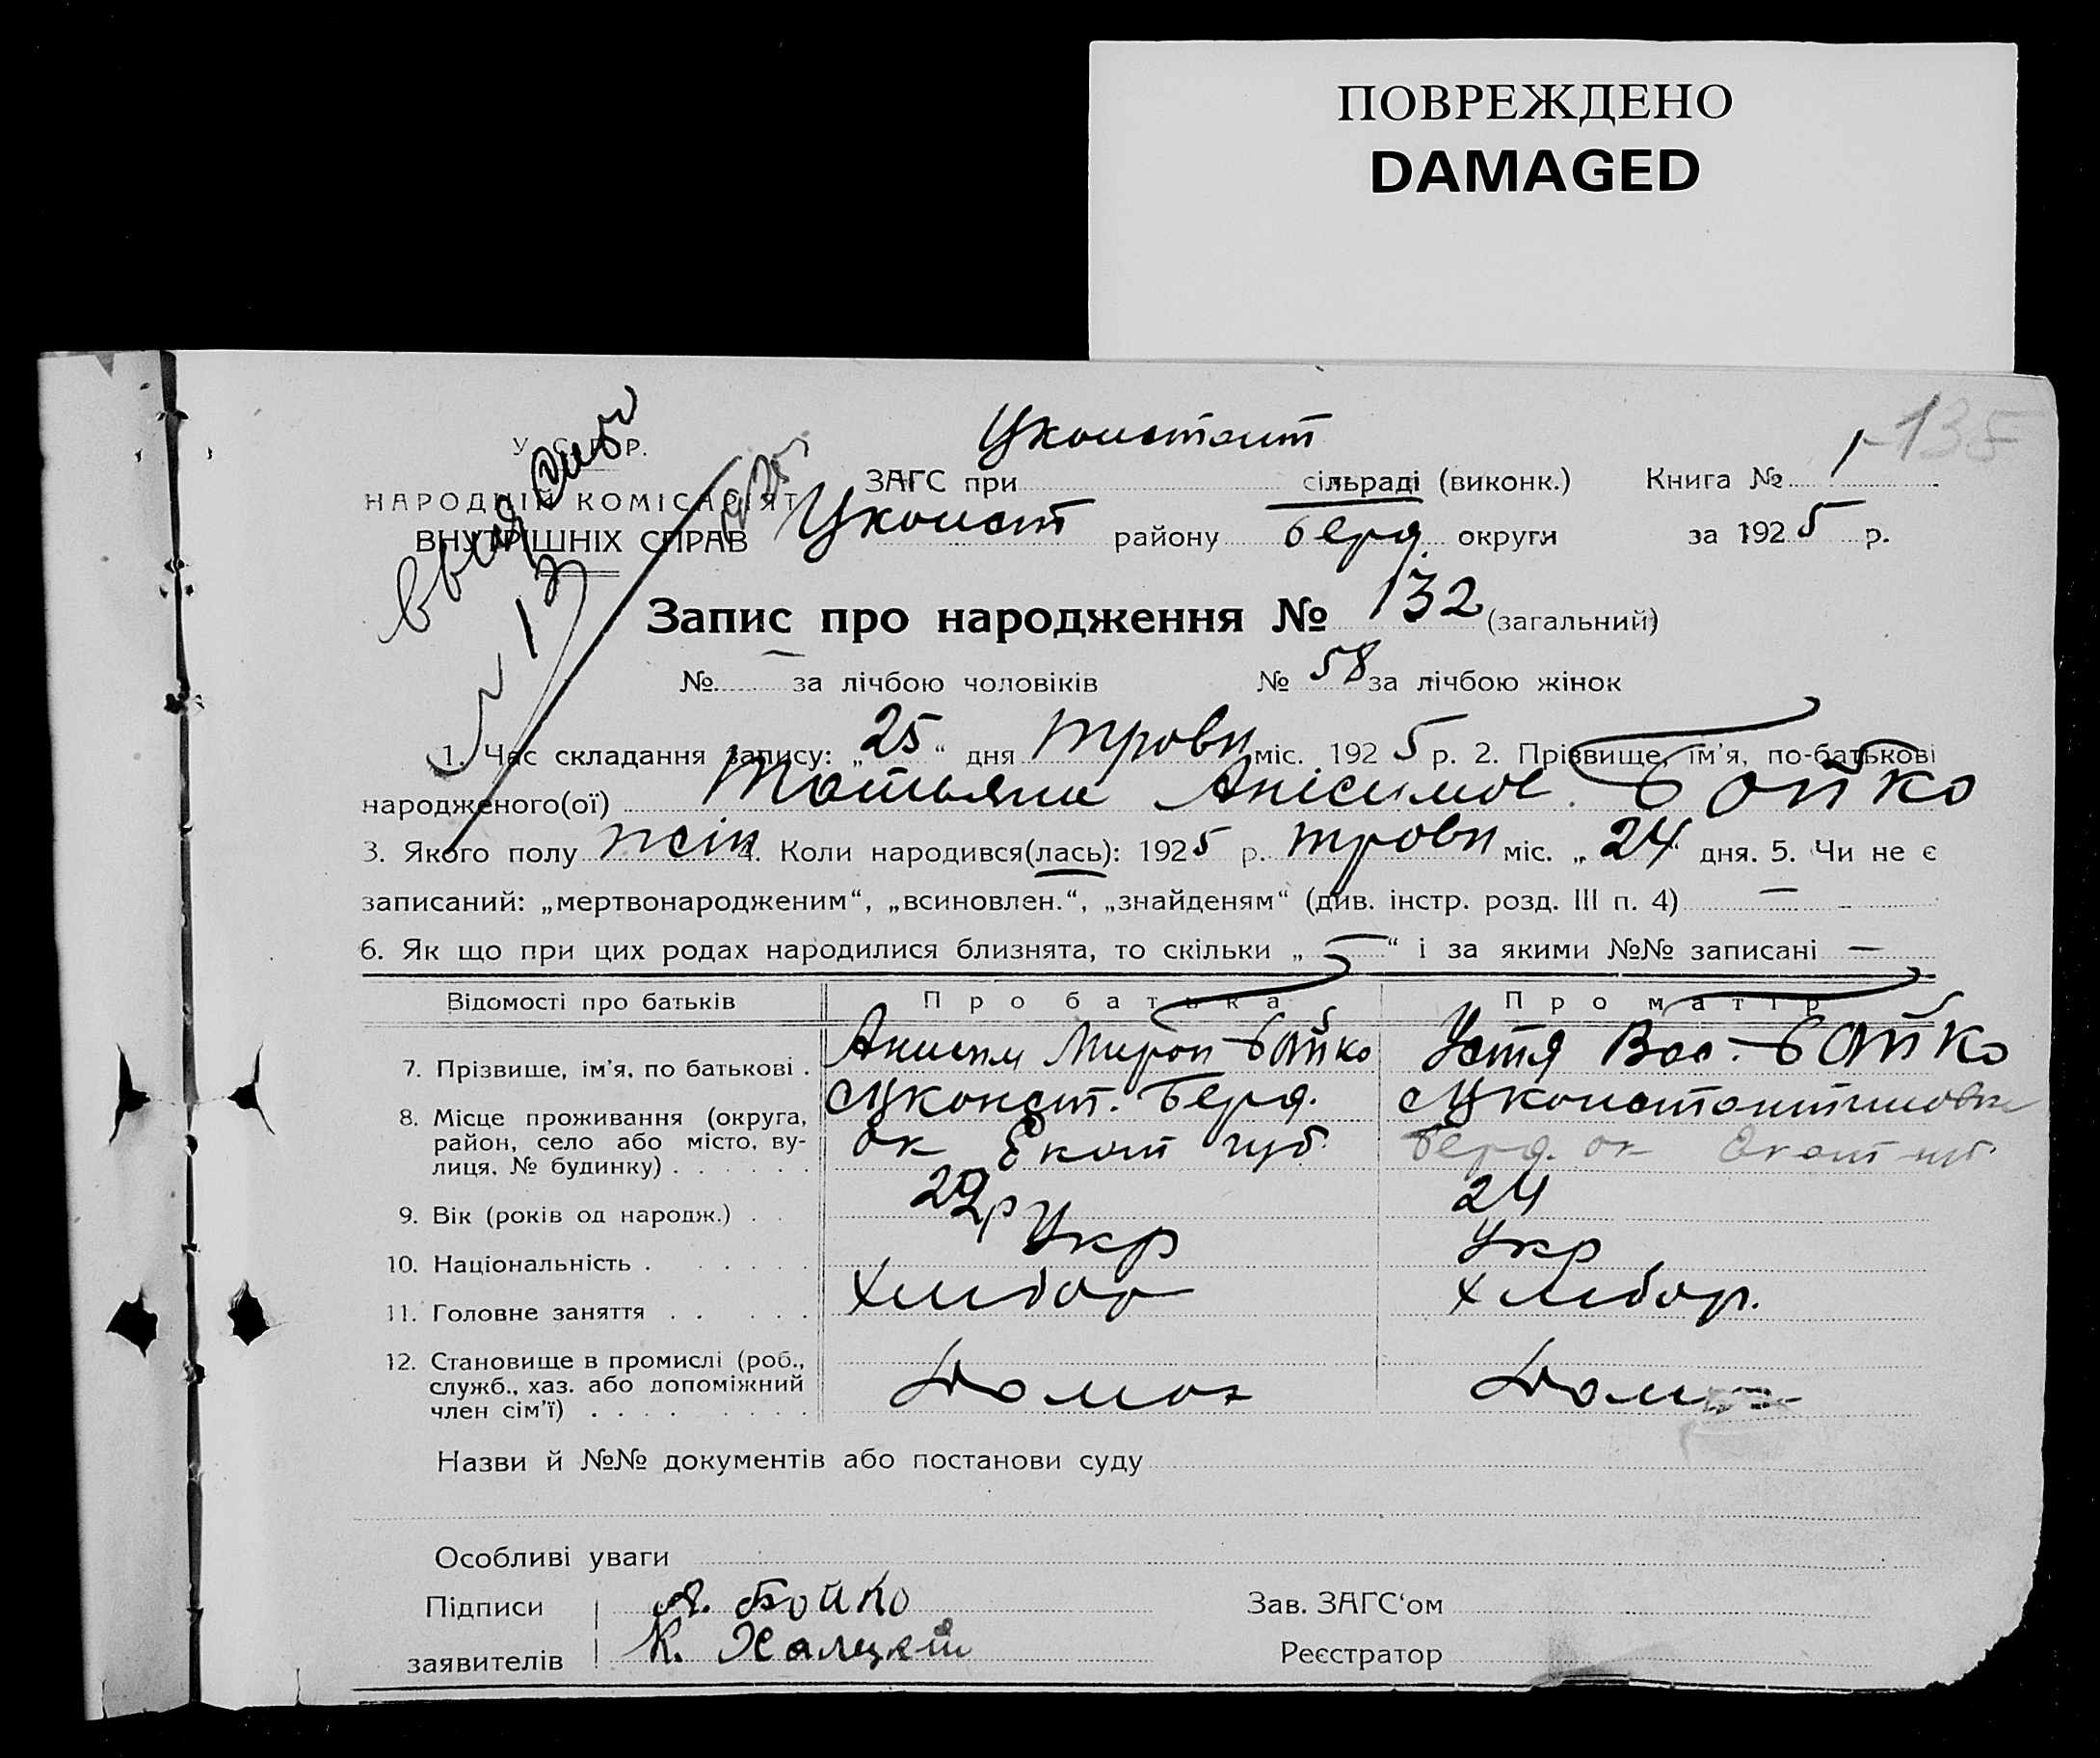 ПОВРЕЖДЕНО
DAMAGED
135
Цконстант
У. С. Р. Р.
ЗАГС при сільраді (виконк.) Книга № 1
НАРОДНІЙ КОМІСАРІЯТ
ВНУТРІШНІХ СПРАВ
Цконст району Берд. округи за 1925 р.
13
Запис про народження № 132 (загальний)
№ — за лічбою чоловіків № 58 за лічбою жінок
1. Час складання запису: „25“ дня травн міс. 1925 р. 2. Прізвище, ім’я, по-батькові
народженого(ої) Татьяна Анісимов. Бойко
3. Якого полу жін 4. Коли народився(лась): 1925 р. травн міс. „24“ дня. 5. Чи не є
записаний: „мертвонародженим“, „всиновлен.“, „знайденям“ (див. інстр. розд. III п. 4) —
6. Як що при цих родах народилися близнята, то скільки „—“ і за якими №№ записані —
Відомості про батьків Про батька Про матір
7. Прізвише, ім’я, по батькові . Анисим Мирон Бойко Устя Вас. Бойко
8. Місце проживання (округа, район, село або місто, вулиця, № будинку) . . . . . . Цконст. Берд. ок Екат губ. Цконстантиновка Берд. ок Екат губ.
9. Вік (років од народж.) . . 29р 24
10. Національність . . . . . . Укр Укр
11. Головне заняття . . . . . Хлибор Хлибор.
12. Становище в промислі (роб., служб., хаз. або допоміжний член сім’ї) . . . . . . . .
Назви й №№ документів або постанови суду
Особливі уваги
Підписи А. Бойко Зав. ЗАГС‘ом
заявителів К. Халецкій Реєстратор